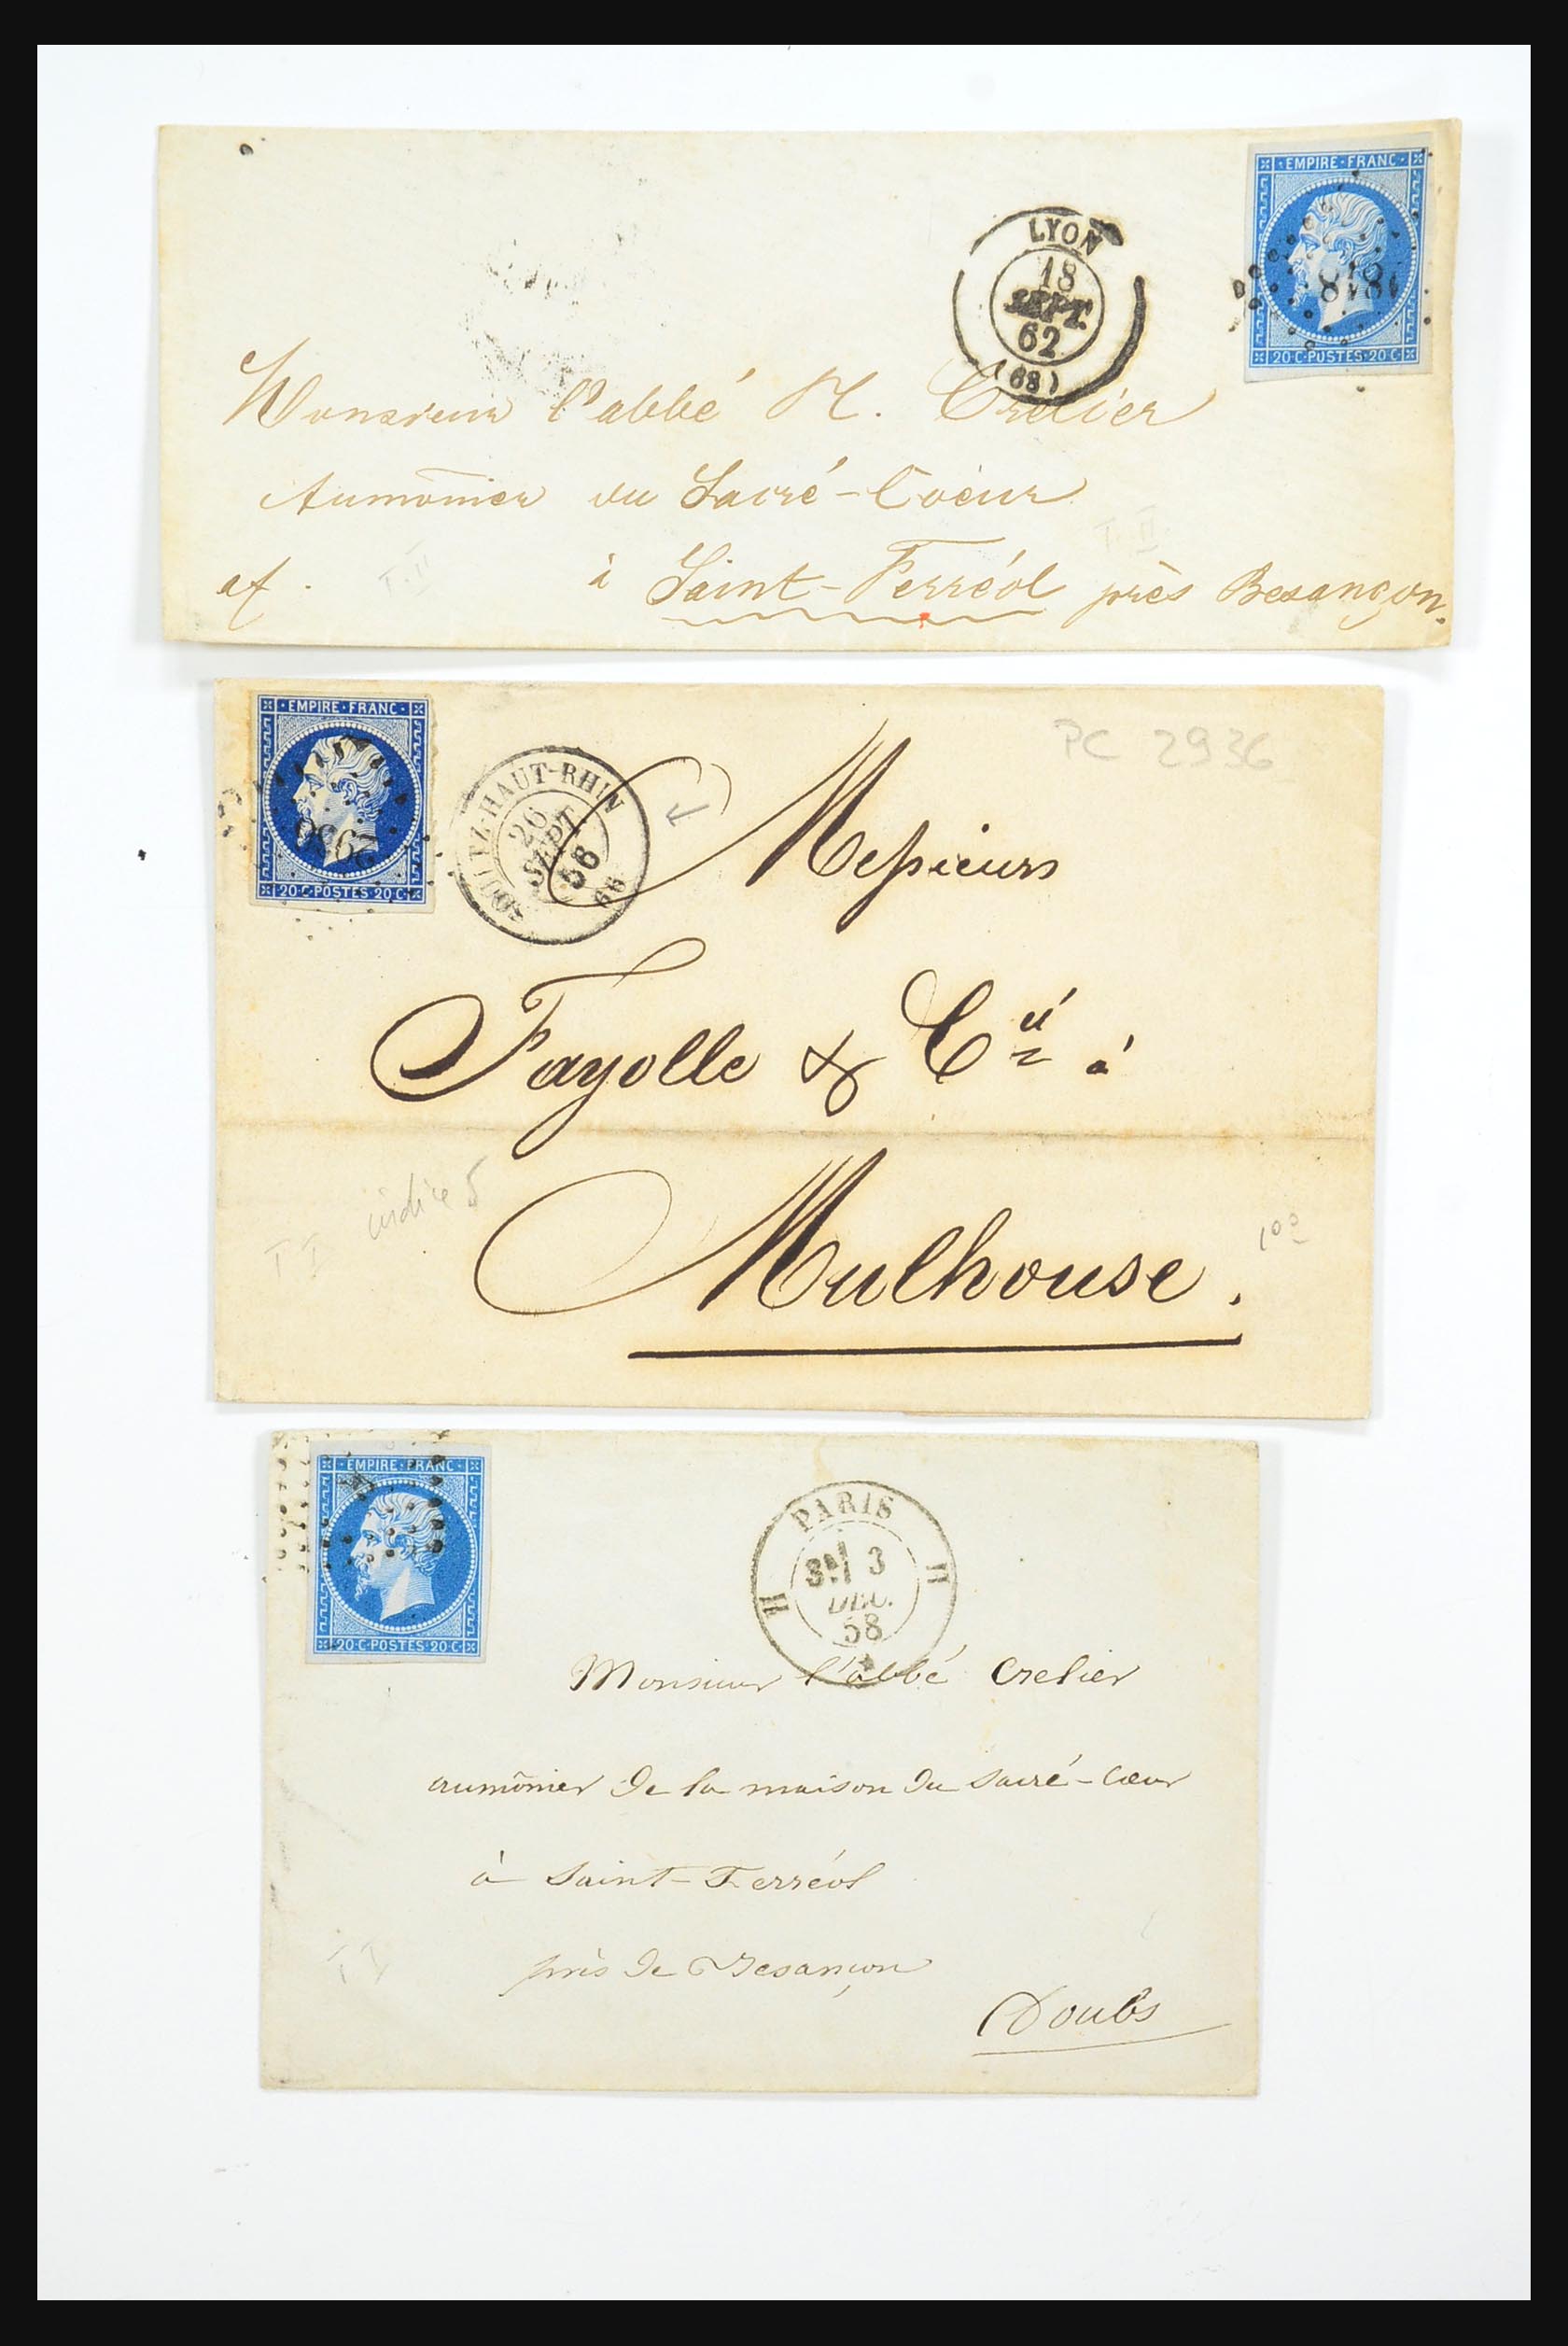 EMPIRE · FRANC ·
1818
20·C·POSTES·20·C
LYON
18
SEPT.
62
(68)
Monsieur l'abbé H. Crelier
Aumônier du Sacré-Coeur
T.II
af. à Saint-Ferréol près Besançon.
T.II
EMPIRE · FRANC ·
2936
20·C·POSTES·20·C
SOULTZ-HAUT-RHIN
26
SEPT.
56
66
PC 2936
Messieurs
Fayolle & Cie à
indice 5
T I
Mulhouse.
EMPIRE · FRANC ·
20·C·POSTES·20·C
PARIS
3
DEC.
58
Monsieur l'abbé Crelier
aumônier de la maison du sacré-cœur
à Saint-Ferréol
T I
près de Besançon
Doubs